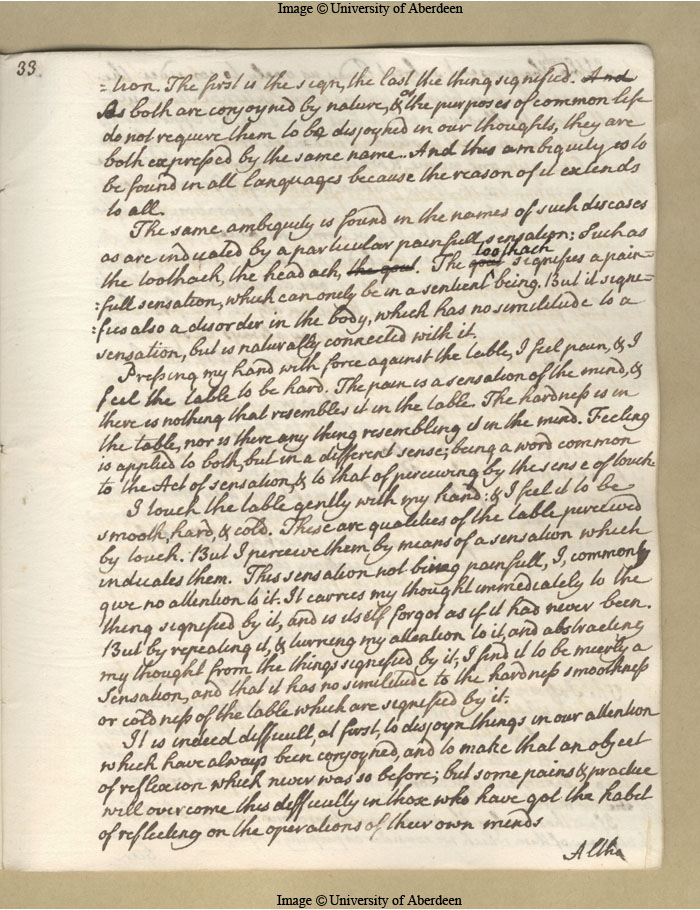 Image © University of Aberdeen
33.
=tion. The first is the sign, the last the thing signified. And
As both are conjoyned by nature, & as the purposes of common life
do not require them to be disjoyned in our thoughts, they are
both expressed by the same name. And this ambiguity is to
be found in all languages because the reason of it extends
to all.
The same ambiguity is found in the names of such diseases
as are indicated by a particular painfull sensation; Such as
the toothach, the head ach, the gout. The gout toothach signifies a pain=
=full sensation, which can onely be in a sentient being. But it signi=
=fies also a disorder in the body, which has no similitude to a
sensation, but is naturally connected with it.
Pressing my hand with force against the table, I feel pain, & I
feel the table to be hard. The pain is a sensation of the mind, &
there is nothing that resembles it in the table. The hardness is in
the table, nor is there any thing resembling it in the mind. Feeling
is applied to both, but in a different sense; being a word common
to the Act of sensation, & to that of perceiving by the sense of touch.
I touch the table gently with my hand: & I feel it to be
smooth, hard, & cold. These are qualities of the table perceived
by touch. But I perceive them by means of a sensation which
indicates them. This sensation not being painfull, I, commonly
give no attention to it. It carries my thought immediately to the
thing signified by it, and is itself forgot as if it had never been.
But by repeating it, & turning my attention to it, and abstracting
my thought from the things signified by it, I find it to be meerly a
Sensation, and that it has no similitude to the hardness smoothness
or coldness of the table which are signified by it.
It is indeed difficult, at first, to disjoyn things in our attention
which have always been conjoyned, and to make that an object
of reflexion which never was so before; but some pains & practice
will overcome this difficulty in those who have got the habit
of reflecting on the operations of their own minds
Altho
Image © University of Aberdeen